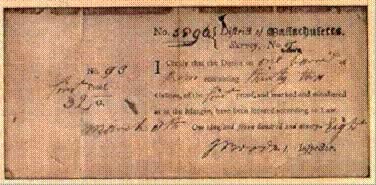 No. 5896 District of Massachusetts.
Survey, No.
No. 93
I Certify that the Duties on one
Rum containing Thirty two
Gallons, of the first Proof, and marked and numbered
as in the Margin, have been secured according to Law.
first Proof
32 G.
March 9th One thousand seven hundred and ninety-eight
Inspector.